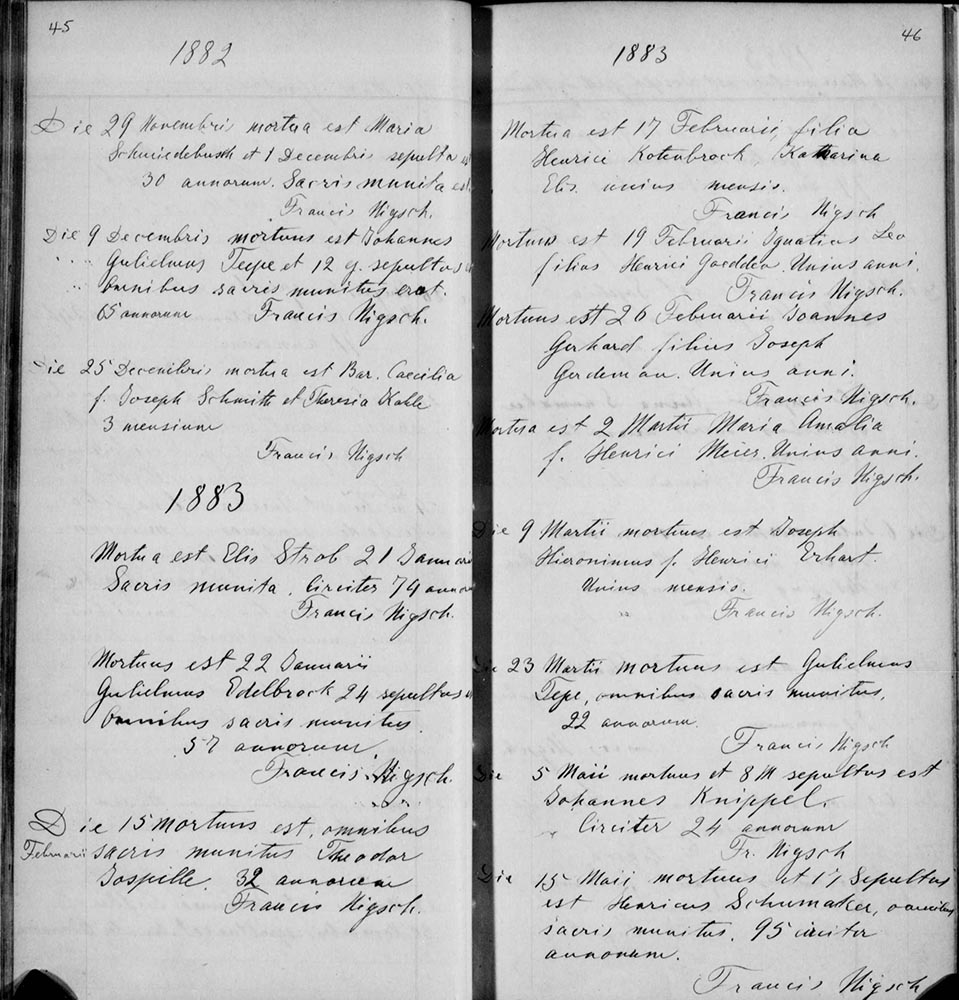 45
1882
Die 29 Novembris mortua est Maria
Schmiedebusch et 1 Decembris sepulta est
30 annorum. Sacris munita est.
Francis Nigsch.
Die 9 Decembris mortuus est Johannes
Gulielmus Tepe et 12 ej. sepultus
Omnibus sacris munitus erat.
65 annorum Francis Nigsch.
Die 25 Decembris mortua est Bar. Caecilia
f. Joseph Schmitt et Theresia Kahle
3 mensium
Francis Nigsch
1883
Mortua est Elis Strob 21 Januarii
Sacris munita. Circiter 79 annorum
Francis Nigsch.
Mortuus est 22 Januarii
Gulielmus Edelbrock 24 sepultus
Omnibus sacris munitus
57 annorum
Francis Nigsch.
Die 15 mortuus est, omnibus
Februarii sacris munitus Theodor
32 annorum
Francis Nigsch.
46
1883
Mortua est 17 Februarii filia
Henrici Kotenbrock Katharina
Elis. unius mensis.
Francis Nigsch
Mortuus est 19 Februarii Ignatius Leo
filius Henrici Goedden. Unius anni.
Francis Nigsch.
Mortuus est 26 Februarii Joannes
Gerhard filius Joseph
Gerdeman. Unius anni.
Francis Nigsch.
Mortua est 2 Martii Maria Amalia
f. Henrici Meier. Unius anni.
Francis Nigsch.
Die 9 Martii mortuus est Joseph
Hieronimus f. Henrici Erhart.
Unius mensis.
Francis Nigsch.
Die 23 Martii mortuus est Gulielmus
Tepe, omnibus sacris munitus,
22 annorum.
Francis Nigsch
Die 5 Maii mortuus et 8 M sepultus est
Johannes Knippel.
Circiter 24 annorum
Fr. Nigsch
Die 15 Maii mortuus et 17 Sepultus
est Henricus Schumaker, omnibus
sacris munitus. 95 circiter
annorum.
Francis Nigsch